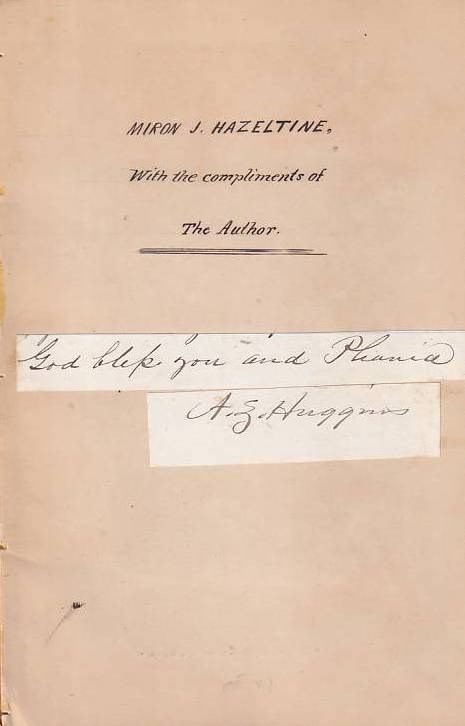 MIRON J. HAZELTINE.
With the compliments of
The Author.
God bless you and Phania
A. Z. Huggins